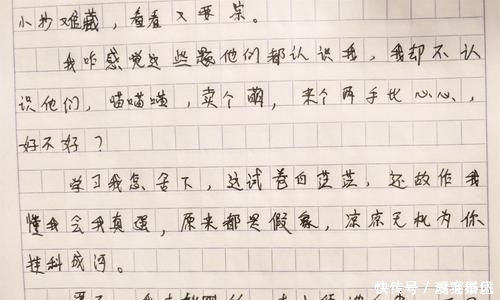 小抄难藏，看看又要呆。
我咋感觉这些题他们都认识我，我却不认
识他们，喵喵喵，卖个萌，来个两手比心心，
好不好？
学习我怎舍下，这试卷白茫茫，还故作我
懂我会我真强，原来都是假象，凉凉天机为你
挂科成河。
快传号／